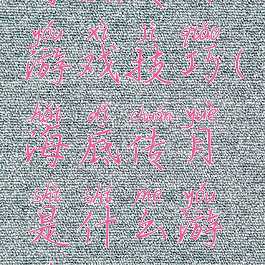 yóu xì jì qiǎo
游戏技巧(
hǎi dǐ chuán yuè
海底传月
shì shí me yóu
是什么游